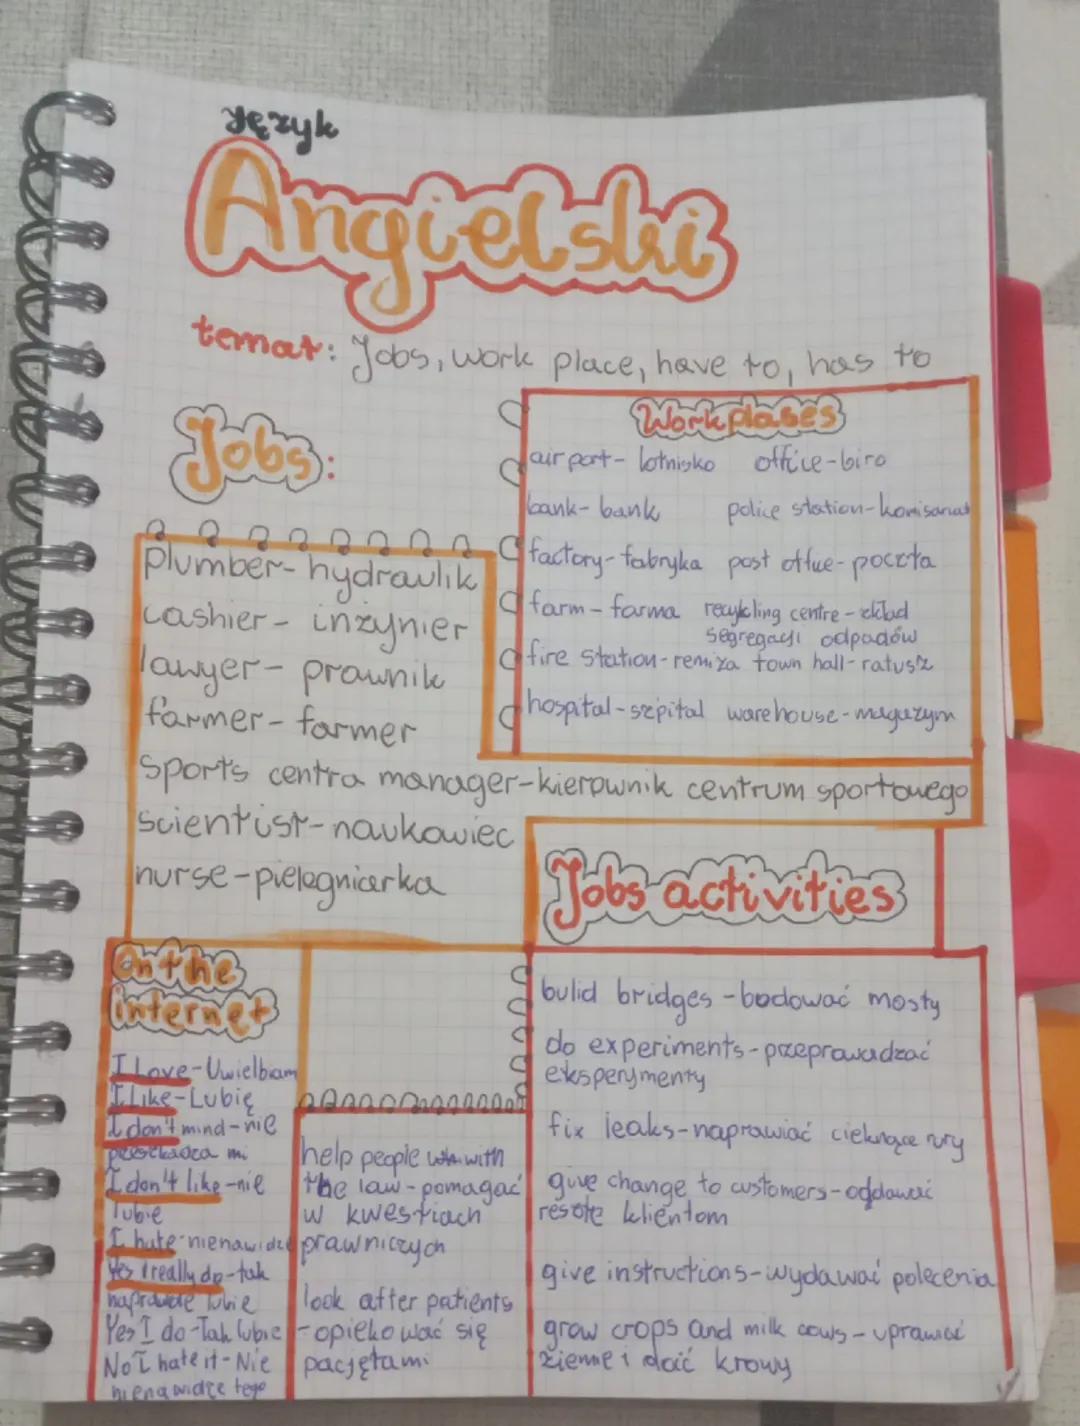 język
Angielski
temat: Jobs, work place, have to, has to
Jobs:
plumber- hydraulik
cashier - inżynier
lawyer- prawnik
farmer- farmer
sports centra manager-kierownik centrum sportowego
scientist-naukowiec
nurse-pielęgniarka
Workplases
airport- lotnisko office-biro
bank- bank police station-komisariat
factory-fabryka post office-poczta
farm-farma recykling centre-zkład
segregacji odpadów
fire station-remiza town hall-ratusz
hospital-szpital warehouse-magazym
Jobs activities
bulid bridges -bodować mosty
do experiments-przeprowadzać
eksperymenty
fix leaks-naprawiać cieknące rury
give change to customers-oddawać
resztę klientom
give instructions-wydawać polecenia
grow crops and milk cows-uprawiać
ziemie i doić krowy
On the
internet
I Love-Uwielbiam
I Like-Lubię
I don't mind-nie
przeszkadza mi
I don't like-nie
lubie
I hate-nienawidzę
Yes I really do-tak
naprawde lubie
Yes I do-Tak lubie
No I hate it-Nie
nienawidzę tego
help people with
the law-pomagać
w kwestiach
prawniczych
look after patients
-opiekować się
pacjętami